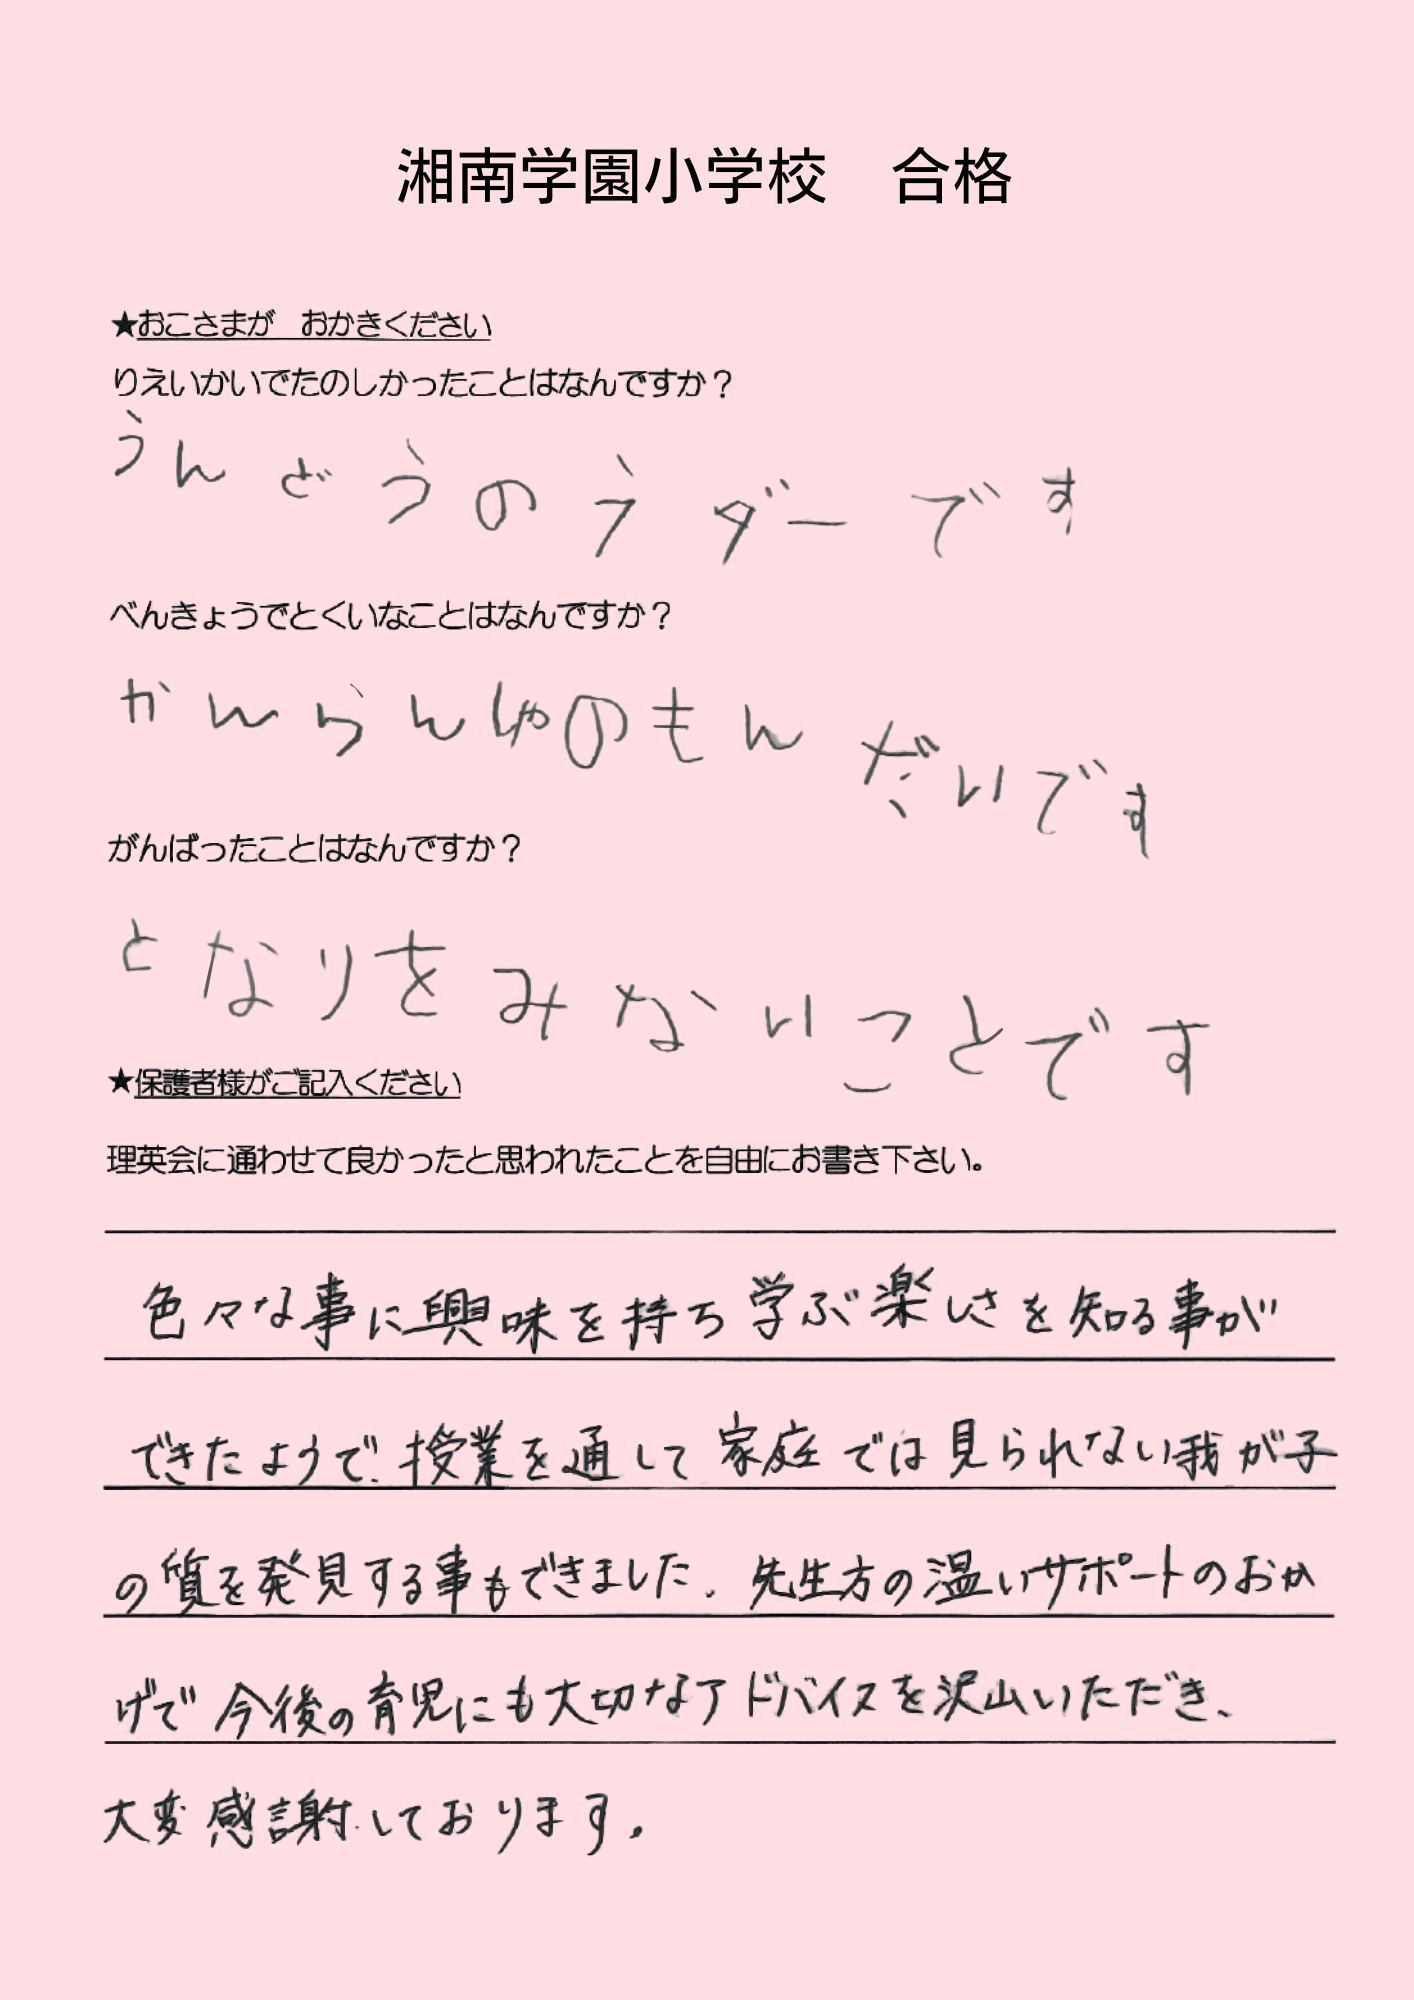 湘南学園小学校　合格
★おこさまが　おかきください
りえいかいでたのしかったことはなんですか？
うんどうのうダーです
べんきょうでとくいなことはなんですか？
かんらんしゃのもんだいです
がんばったことはなんですか？
となりをみないことです
★保護者様がご記入ください
理英会に通わせて良かったと思われたことを自由にお書き下さい。
色々な事に興味を持ち学ぶ楽しさを知る事が
できたようで、授業を通して家庭では見られない我が子
の質を発見する事もできました。先生方の温いサポートのおか
げで今後の育児にも大切なアドバイスを沢山いただき、
大変感謝しております。